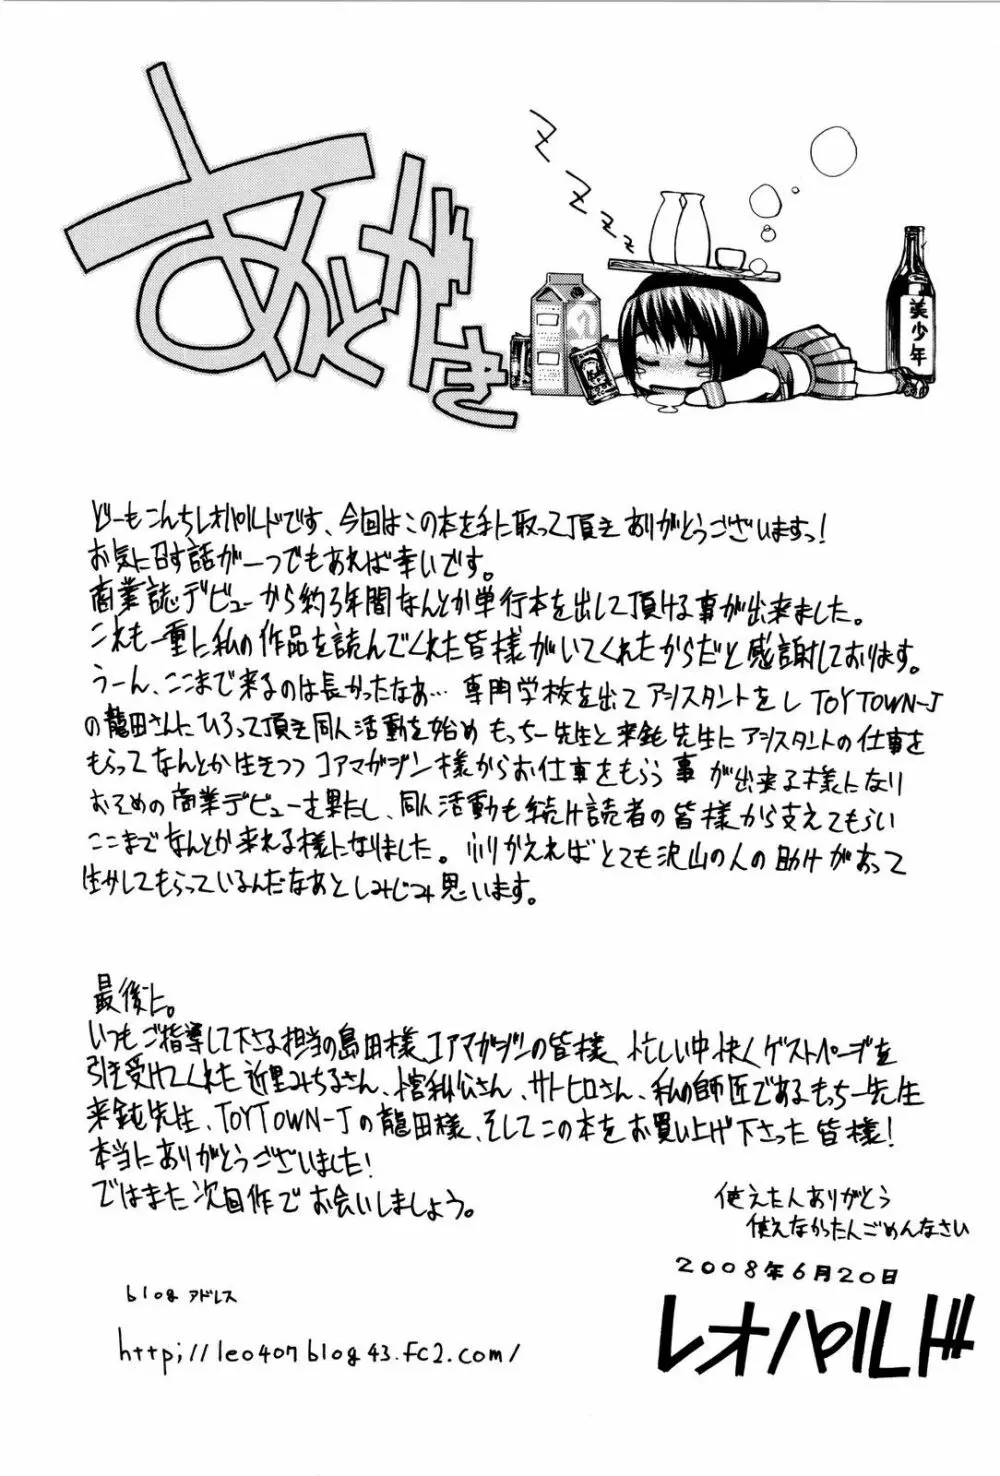 あとがき
美少年
どーもこんちレオパルドです、今回はこの本を手に取って頂きありがとうございますっ!
お気に召す話が一つでもあれば幸いです。
商業誌デビューから約3年間なんとか単行本を出して頂ける事が出来ました。
これも一重に私の作品を読んでくれた皆様がいてくれたからだと感謝しております。
うーん、ここまで来るのは長かったなあ… 専門学校を出てアシスタントをし TOYTOWN-J
の龍田さんにひろって頂き同人活動を始め もっちー先生と来鈍先生にアシスタントの仕事を
もらってなんとか生きつつ コアマガジン様からお仕事をもらう事が出来る様になり
おそめの商業デビューを果たし、同人活動も続け読者の皆様から支えてもらい
ここまでなんとか来れる様になりました。ふりかえればとても沢山の人の助けがあって
生かしてもらっているんだなあとしみじみ思います。
最後に。
いつもご指導して下さる担当の島田様、コアマガジンの皆様、忙しい中快くゲストページを
引き受けてくれた 近里みちるさん、 さん、サトヒロさん、私の師匠であるもっちー先生
来鈍先生、TOYTOWN-Jの龍田様、そしてこの本をお買い上げ下さった皆様!
本当にありがとうございました!
ではまた次回作でお会いしましょう。
使えた人ありがとう
使えなかった人ごめんなさい
2008年6月20日
レオパルド
blog アドレス
http://leo407blog43.fc2.com/